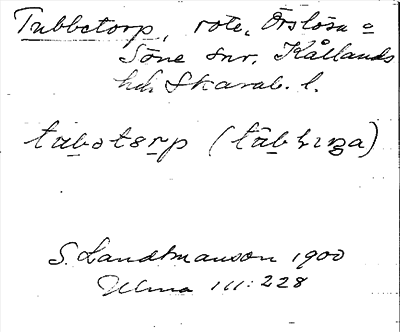 Tubbetorp, rote, Örslösa o
Söne snr, Kållands
hd, Skarab. l.
tubətorp (tubbiga)
S. Landtmanson 1900
Ulma 111:228